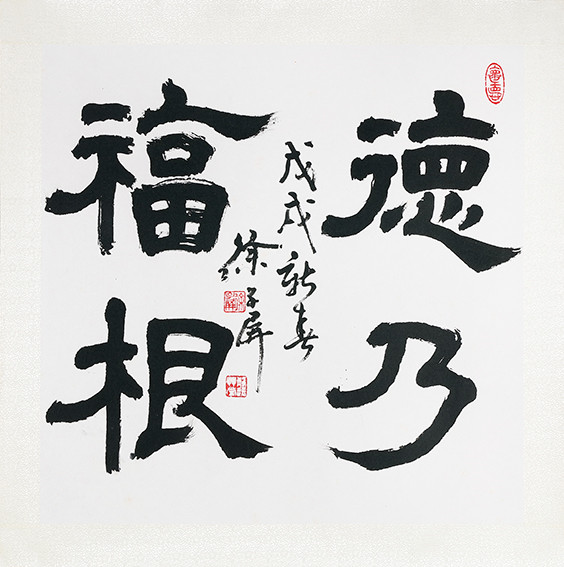 德乃
福根
戊戌新春
徐子屏